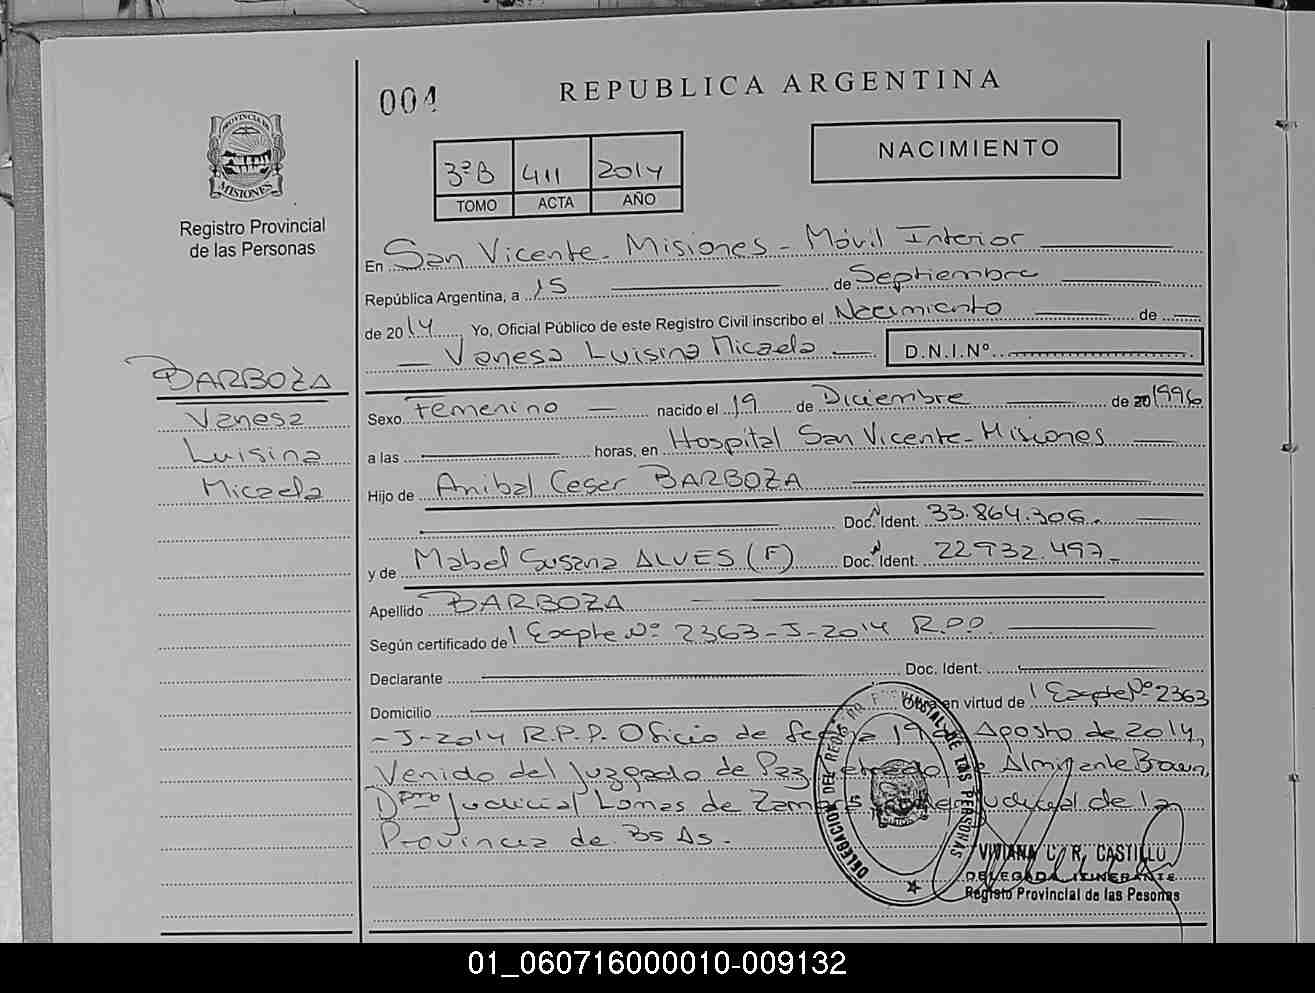 004
REPUBLICA ARGENTINA
NACIMIENTO
3ºB 411 2014
TOMO ACTA AÑO
PROVINCIA DE
MISIONES
Registro Provincial
de las Personas
En San Vicente - Misiones - Móvil Interior
República Argentina, a 15 de Septiembre
de 2014 Yo, Oficial Público de este Registro Civil inscribo el Nacimiento de
Vanesa Luisina Micaela D.N.I.Nº
BARBOZA
Vanesa
Luisina
Micaela
Sexo Femenino nacido el 19 de Diciembre de 20 1996
a las horas, en Hospital San Vicente - Misiones
Hijo de Anibal Cesar BARBOZA
Doc. Ident. 33.864.306.
y de Mabel Susana ALVES (F) Doc. Ident. 22932.497
Apellido BARBOZA
Según certificado de Expte Nº 2363-J-2014 R.P.P.
Declarante Doc. Ident.
Domicilio Obra en virtud de Expte Nº 2363
-J-2014 R.P.P. Oficio de fecha 19 Agosto de 2014,
Venido del Juzgado de Paz de Almirante Brown,
Dpto Judicial Lomas de Zamora, Judicial de la
Provincia de Bs As.
DELEGACION DEL REGISTRO PROVINCIAL DE LAS PERSONAS
VIVIANA C. R. CASTILLO
DELEGADA ITINERANTE
Registo Provincial de las Pesonas
01_060716000010-009132